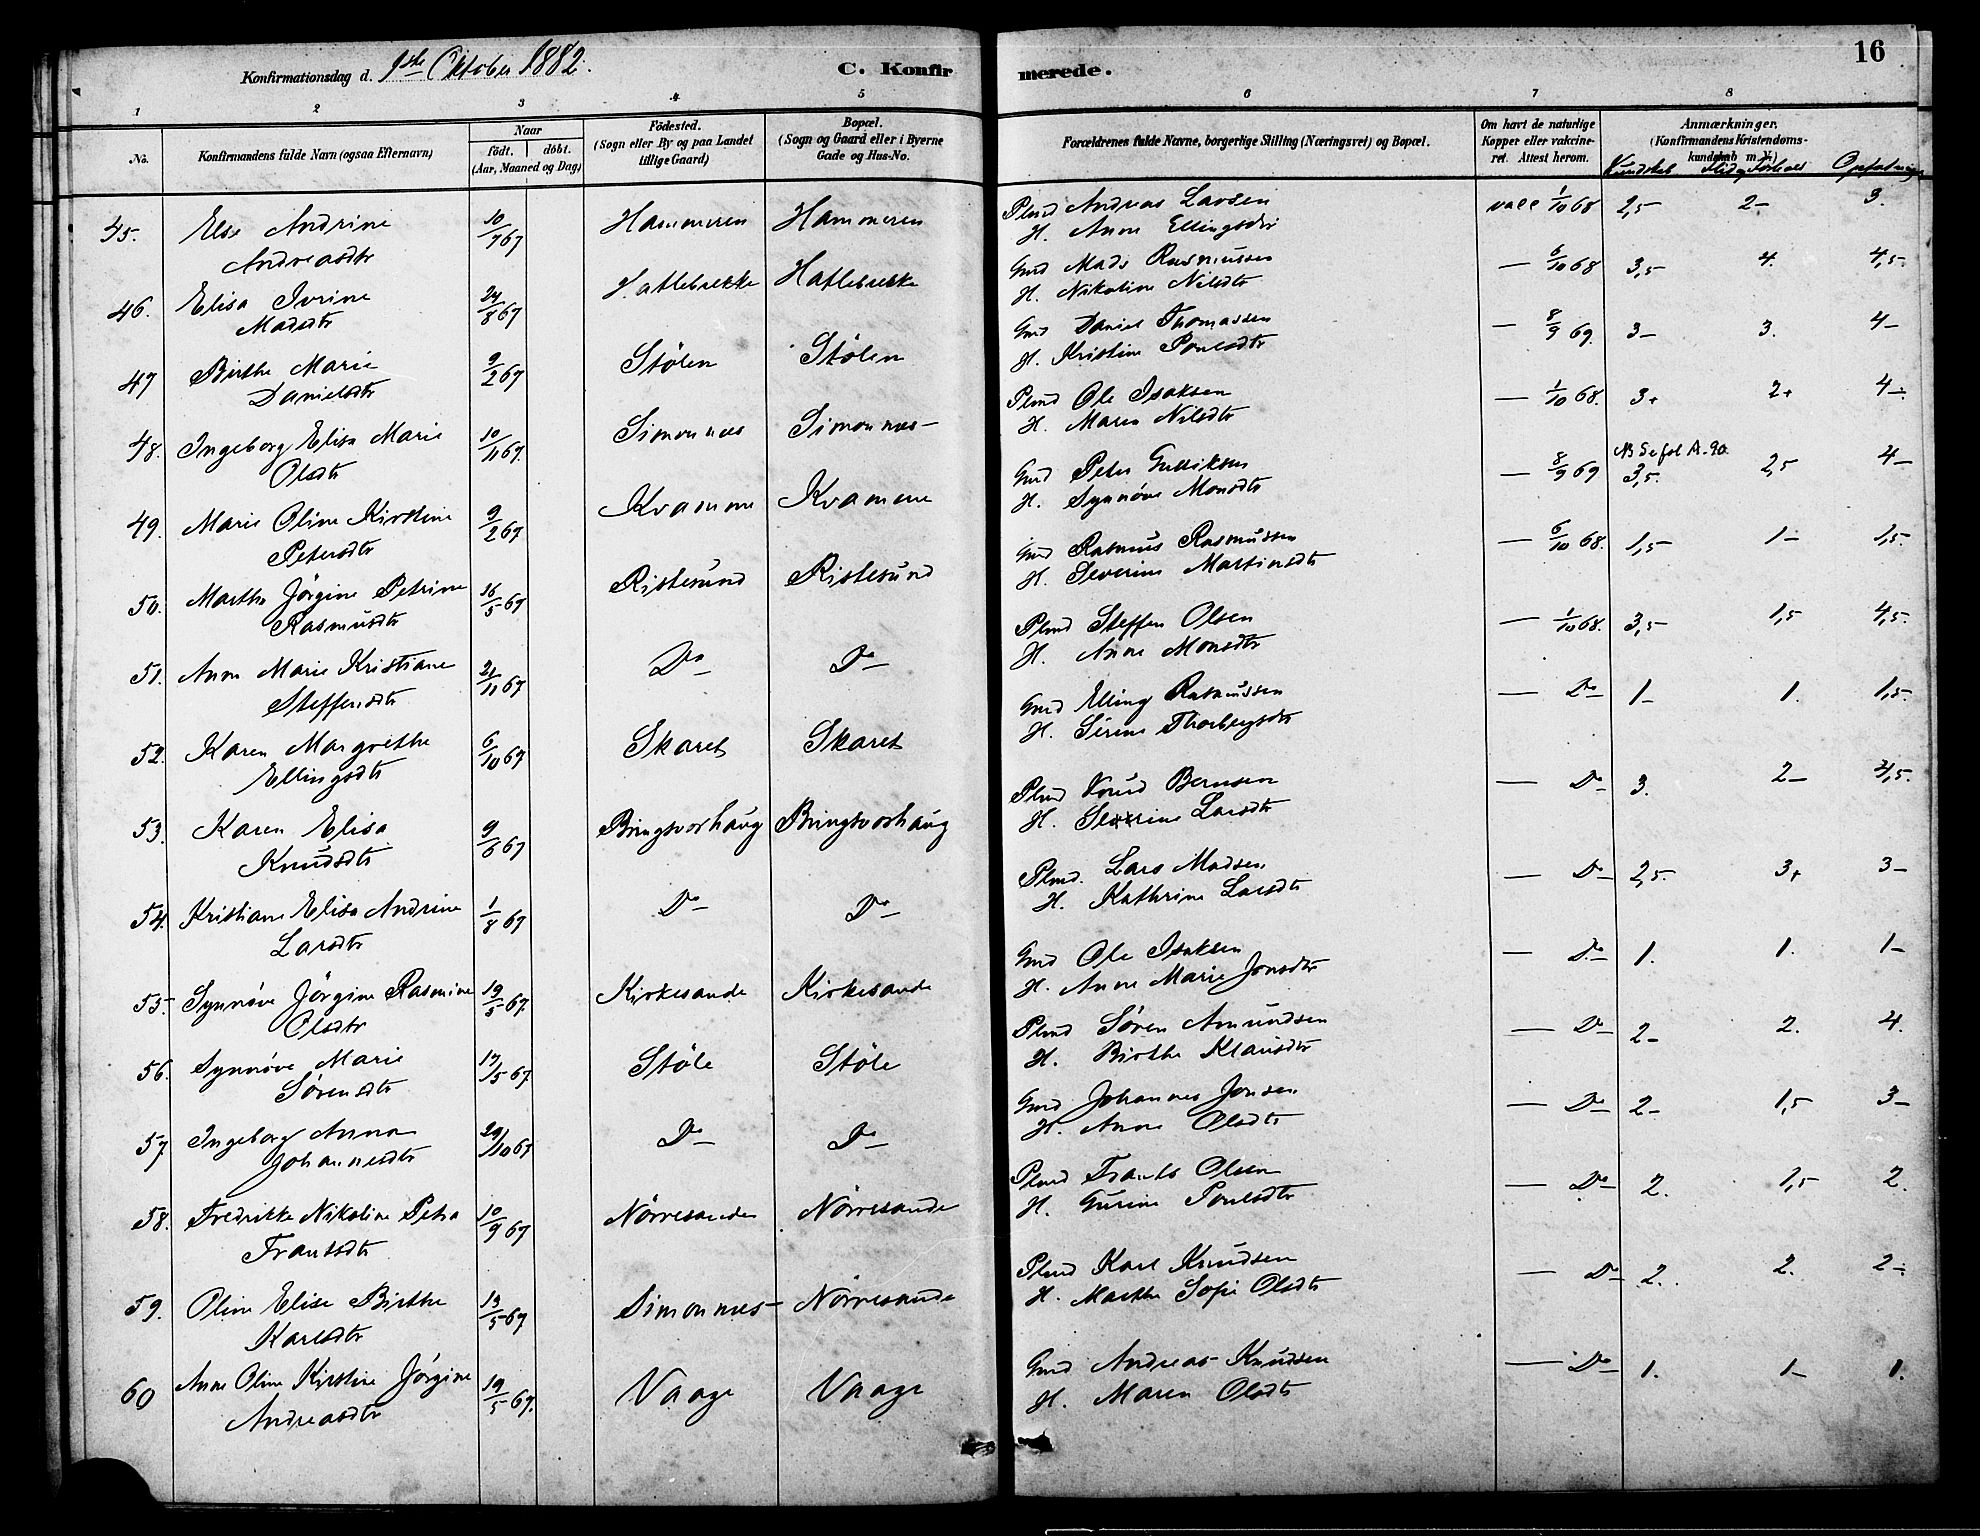 Konfirmationsdag d. 1ste Oktober 1882.
C. Konfirmerede.
16
1 2 3 4 5 6 7 8
No.
Konfirmandens fulde Navn (ogsaa Efternavn)
Naar
födt. döbt.
(Aar, Maaned og Dag)
Födested.
(Sogn eller By og paa Landet
tillige Gaard)
Bopæl.
(Sogn og Gaard eller i Byerne
Gade og Hus-No.
Forældrenes fulde Navne, borgerlige Stilling (Næringsvei) og Bopæl.
Om havt de naturlige
Kopper eller vakcine-
ret. Attest herom.
Anmærkninger.
(Konfirmandens Kristendoms-
kundskab m. V.)
Kundskab Flid og Forhold
45. Else Andrine 10/7 67 Hammeren Hammeren Plmd Andreas Larsen vacc 1/10 68 2,5 2- 3.
Andreasdtr H. Anne Ellingsdtr
46. Elisa Ivrine 24/8 67 Hatlebrekke Hatlebrekke Gmd Mads Rasmussen — 6/10 68 3,5 4. 4,5.
Madsdtr H. Nikoline Nilsdtr
47 Birthe Marie 9/2 67 Stölen Stölen Gmd Daniel Thomassen — 8/9 69. 3- 3. 4-
Danielsdtr H. Kristine Poulsdtr
48. Ingeborg Elisa Marie 10/11 67. Simonnes Simonnes- Plmd Ole Isaksen — 1/10 68. 3+ 2+ 4-
Olsdtr H. Maren Nilsdtr
NB Se fol A. 90.
49. Marie Oline Kirstine 9/2 67 Kvamme Kvamme Gmd Peter Gulliksen — 8/9 69 3,5. 2,5 4-
Petersdtr H. Synnöve Monsdtr
50. Marthe Jörgine Petrine 16/5 67 Ristesund Ristesund Gmd Rasmus Rasmussen — 6/10 68. 1,5 1- 1,5.
Rasmusdtr H. Severine Martinsdtr
51. Anne Marie Kristiane 21/11 67 Do Do Plmd Steffen Olsen — 1/10 68. 3,5 1,5 4,5.
Steffensdtr H. Anne Monsdtr
52. Karen Margrethe 6/10 67 Skaret Skaret Gmd Elling Rasmussen — Do 1- 1. 1,5.
Ellingsdtr H. Sirene Thorbergsdtr
53. Karen Elisa 9/6 67 Bringsvorhaug Bringsvorhaug Plmd Knud Bernsen — Do 3. 2- 4,5.
Knudsdtr H. Larsdtr
54. Kristiane Elisa Andrine 1/8 67 Do Do Plmd. Lars Madsen — Do 2,5. 3+ 3-
Larsdtr H. Kathrine Larsdtr
55. Synnöve Jörgine Rasmine 19/5 67. Kirkesande Kirkesande Gmd Ole Isaksen — Do 1. 1. 1-
Olsdtr H. Anne Marie Jonsdtr
56. Synnöve Marie 17/5 67 Stöle Stöle Plmd Sören Amundsen — Do 2- 2. 4.
Sörensdtr H. Birthe Klausdtr
57 Ingeborg Anna 29/10 67 Do Do Gmd Johannes Jonsen — Do 2- 1,5 3-
Johannesdtr H. Anne Olsdtr
58. Fredrikke Nikoline Petra 10/9 67 Nörresande Nörresande Plmd Frants Olsen — Do 2. 1,5 2.
Frantsdtr H. Gurine Poulsdtr
59. Oline Elise Birthe 13/5 67 Simonnes- Nörresande Plmd Karl Knudsen — Do 2. 2. 2-
Karlsdtr H. Marthe Sofie Olsdtr
60 Anne Oline Kirstine Jörgine 19/5 67. Vaage Vaage Gmd Andreas Knudsen — Do 1. 1- 1.
Andreasdtr H. Maren Olsdtr